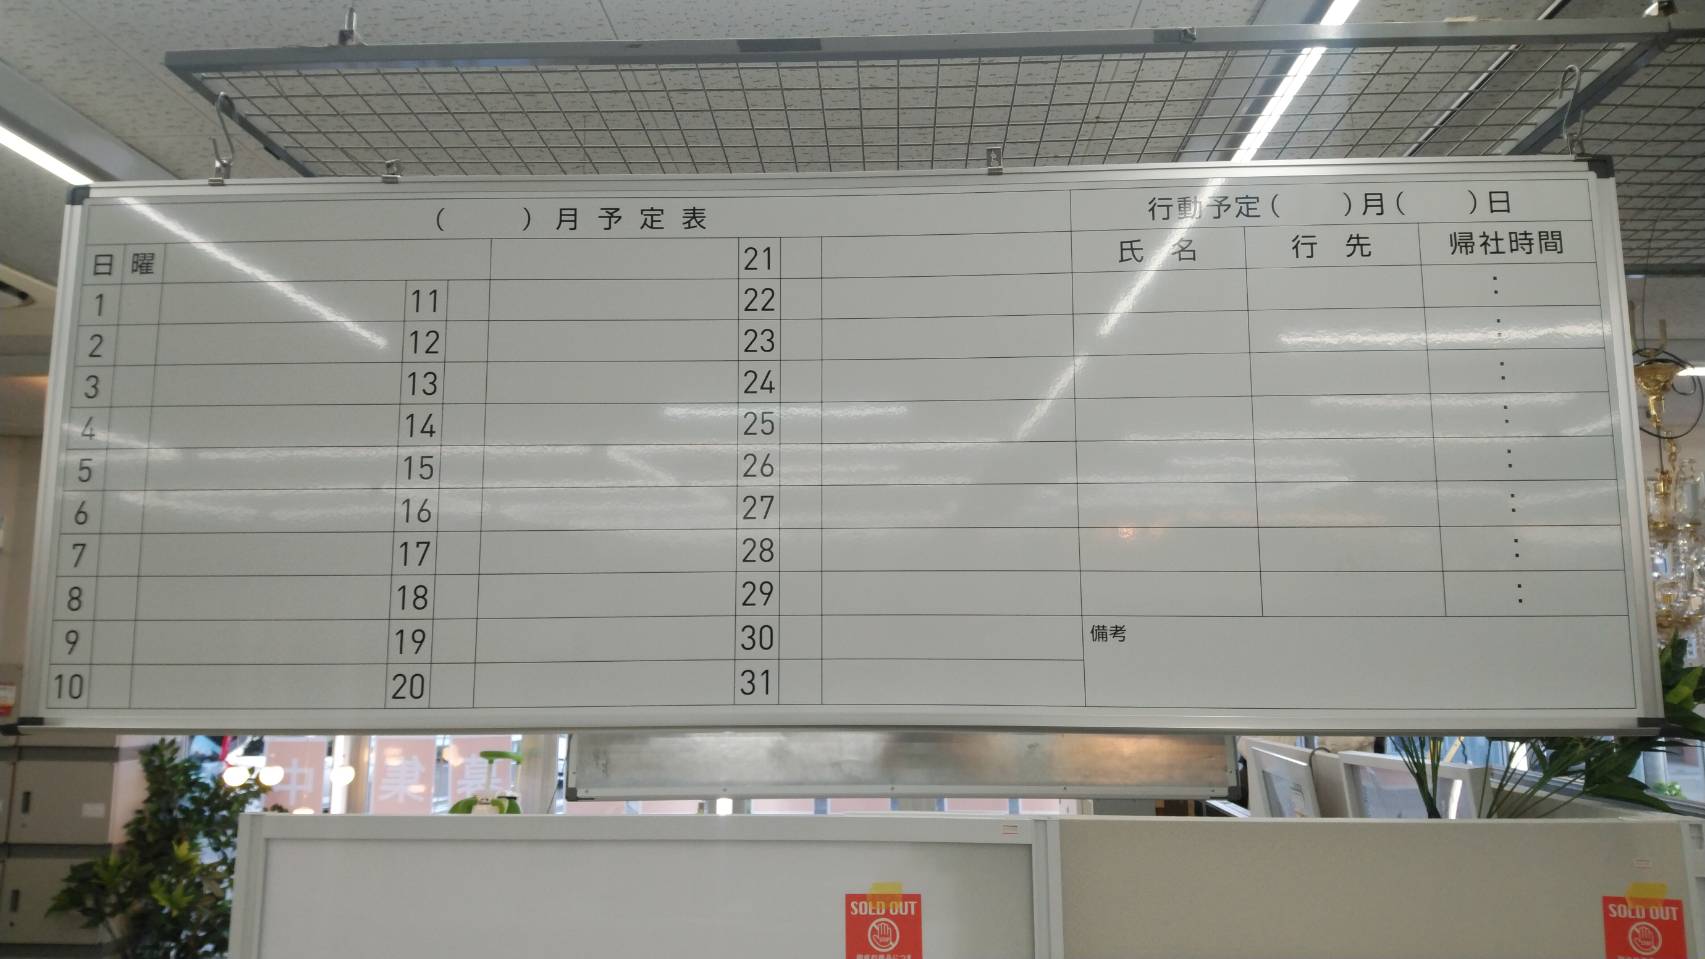 ( ) 月 予 定 表
行動予定 ( ) 月 ( ) 日
日 曜
1
2
3
4
5
6
7
8
9
10
11
12
13
14
15
16
17
18
19
20
21
22
23
24
25
26
27
28
29
30
31
氏 名 行 先 帰社時間
:
:
:
:
:
:
:
:
備考
募集中
SOLD OUT
SOLD OUT